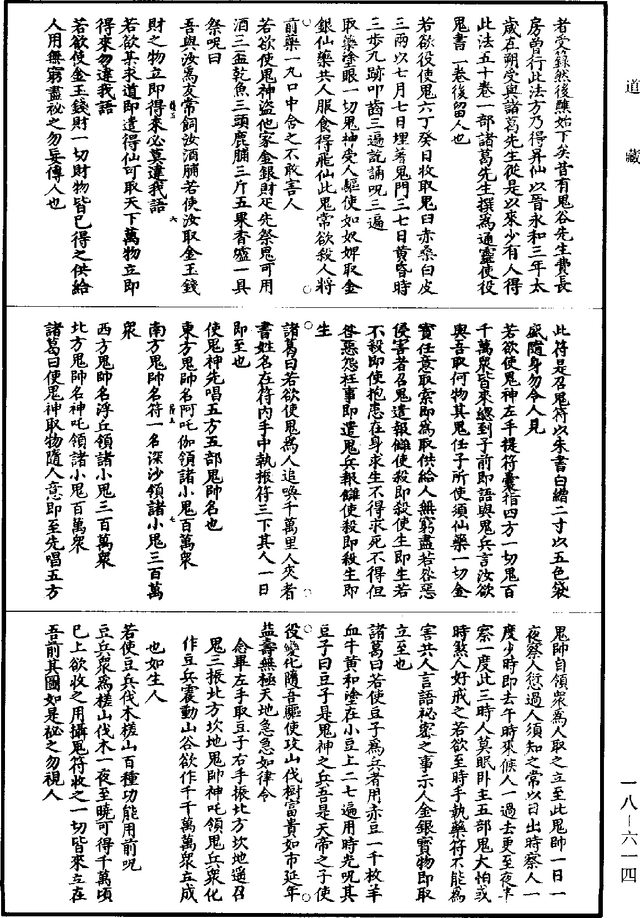 道藏
者受籙然後應始下矣昔有鬼谷先生費長
房曾行此法方乃得昇仙以晉永和三年太
歲在朔受與諸葛先生從是以來少有人得
此法五十卷一部諸葛先生撰為通靈使役
鬼書一卷後留人也
若欲役使鬼六丁癸日收取鬼臼赤桑白皮
三兩以七月七日埋着鬼門三七日黃昏時
三步九跡叩齒三遍說誦呪三遍
取藥塗眼一切鬼神受人驅使如奴婢取金
銀仙藥共人服食得飛仙此鬼常欲殺人將
前藥一丸口中含之不敢害人
若欲使鬼神盜他家金銀財疋先祭鬼可用
酒三盃乾魚三頭鹿脯三斤五果香爐一具
祭呪曰
吾與汝為友常飼汝酒脯若使汝取金玉錢
財之物立即得來必莫違我語
若欲某求道即遣得仙可取天下萬物立即
得來勿違我語
若欲使金玉錢財一切財物皆已得之供給
人用無窮盡祕之勿妄傳人也
此符是召鬼符以朱書白繒二寸以五色袋
盛隨身勿令人見
若欲使鬼神左手提符囊指四方一切鬼百
千萬衆皆來總到子前即語與鬼兵言汝欲
與吾取何物其鬼任子所使須仙藥一切金
寶任意取索即為取供給人無窮盡若欲惡
侵害者召鬼遣報讎使殺即殺使生即生若
不殺即使抱患在身求生不得求死不得但
咎惡怨枉事即遣鬼兵報讎使殺即殺生即
生
諸葛曰若欲使鬼為人追喚千萬里人來者
書姓名在符內手中執振符三下其人一日
即至也
使鬼神先唱五方五部鬼帥名也
東方鬼帥名阿吒伽領諸小鬼百萬衆
南方鬼帥名符一名深沙領諸小鬼三百萬
衆
西方鬼帥名浮丘領諸小鬼三百萬衆
北方鬼帥名神吒領諸小鬼百萬衆
諸葛曰使鬼神取物隨人意即至先唱五方
鬼帥自領衆為人取之立至此鬼帥一日一
夜察人愆過人須知之常以日出時察人一
度少時即去午時來候人一過去更至夜半
察一度此三時人莫眠卧主五部鬼大怕或
時煞人好戒之若欲至時手執藥符不能為
害共人言語祕密之事示人金銀寶物即取
立至也
諸葛曰若使豆子為兵者用赤豆一千枚羊
血牛黃和塗在小豆上二七遍用時先呪其
豆子曰豆子是鬼神之兵吾是天帝之子使
役變化隨吾驅使攻山伐樹富貴如市延年
益壽無極天地急急如律令
念畢左手取豆子右手振北方坎地遙召
鬼三振北方坎地鬼帥神吒領鬼兵衆化
作豆兵震動山谷欲作千千萬萬衆立成
也如生人
若使豆兵伐木槎山百種功能用前呪
豆兵衆為槎山伐木一夜至曉可得千萬頃
已上欲收之用攝鬼符收之一切皆來立在
吾前其圖如是祕之勿視人
一八—六一四